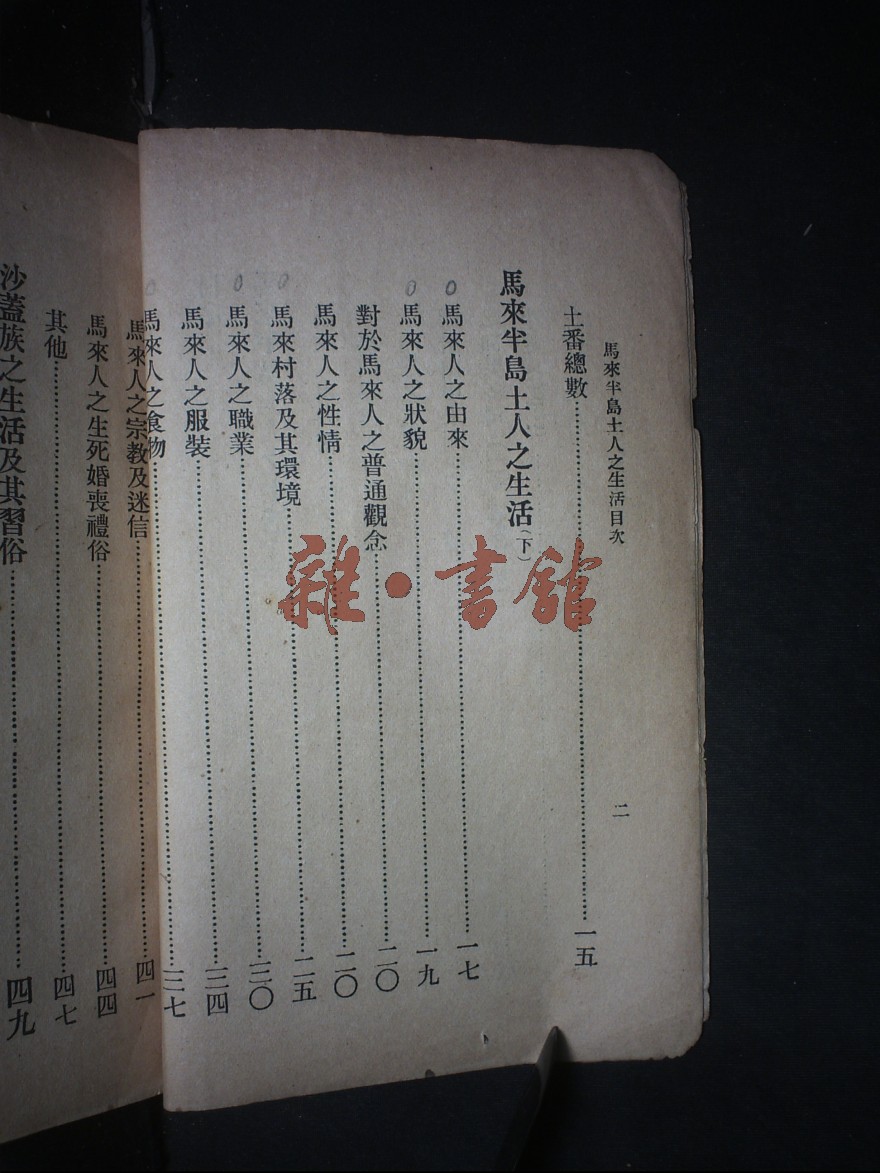 馬來半島土人之生活目次 二
土番總數 一五
馬來半島土人之生活(下)
馬來人之由來 一七
馬來人之狀貌 一九
對於馬來人之普通觀念 二〇
馬來人之性情 二〇
馬來村落及其環境 二五
馬來人之職業 三〇
馬來人之服裝 三四
馬來人之食物 三七
馬來人之宗教及迷信 四一
馬來人之生死婚喪禮俗 四四
其他 四七
沙蓋族之生活及其習俗 四九
雜·書館